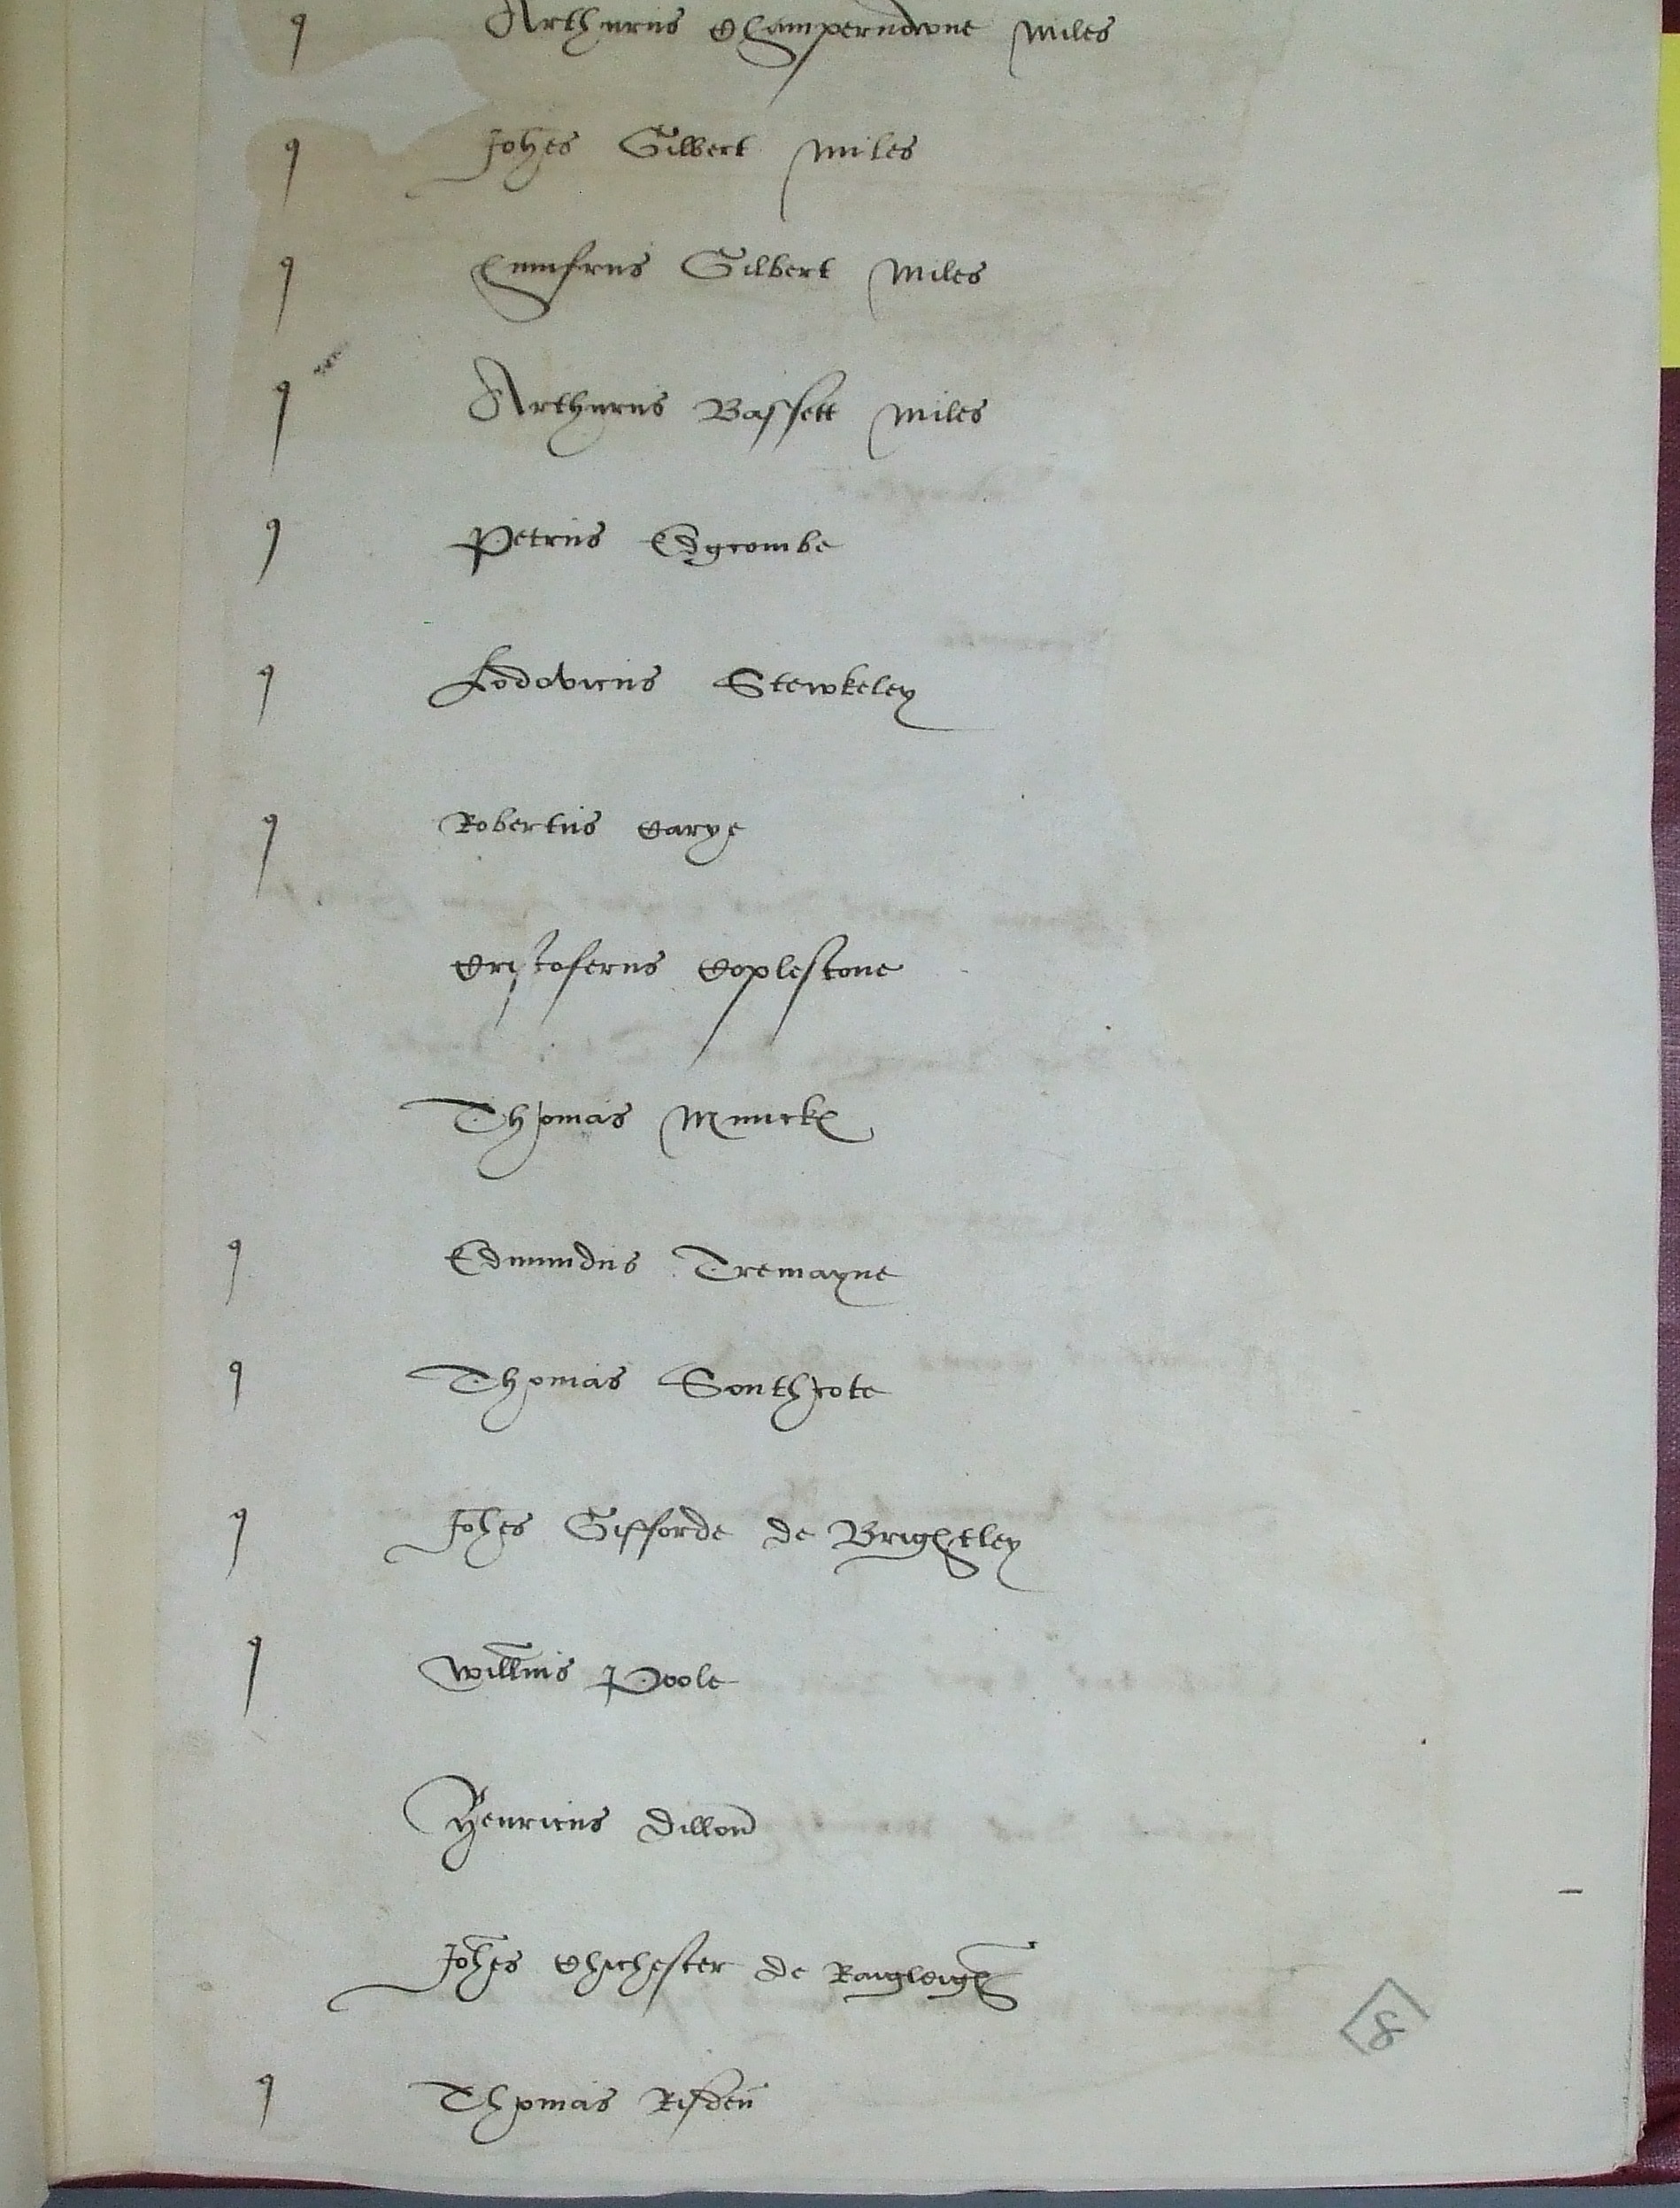 Arthurus Champerndwne Miles
Johes Gilbert Miles
Humfrus Gilbert Miles
Arthurus Bassett Miles
Petrus Edgcombe
Lodovicus Stewkeley
Robertus Carye
Cristoferus Coplestone
Thomas Muncke
Edmundus Tremayne
Thomas Southcote
Johes Gifforde de Brightley
Willms Poole
Henricus Dillon
Johes Chichester de
Thomas Risden
8